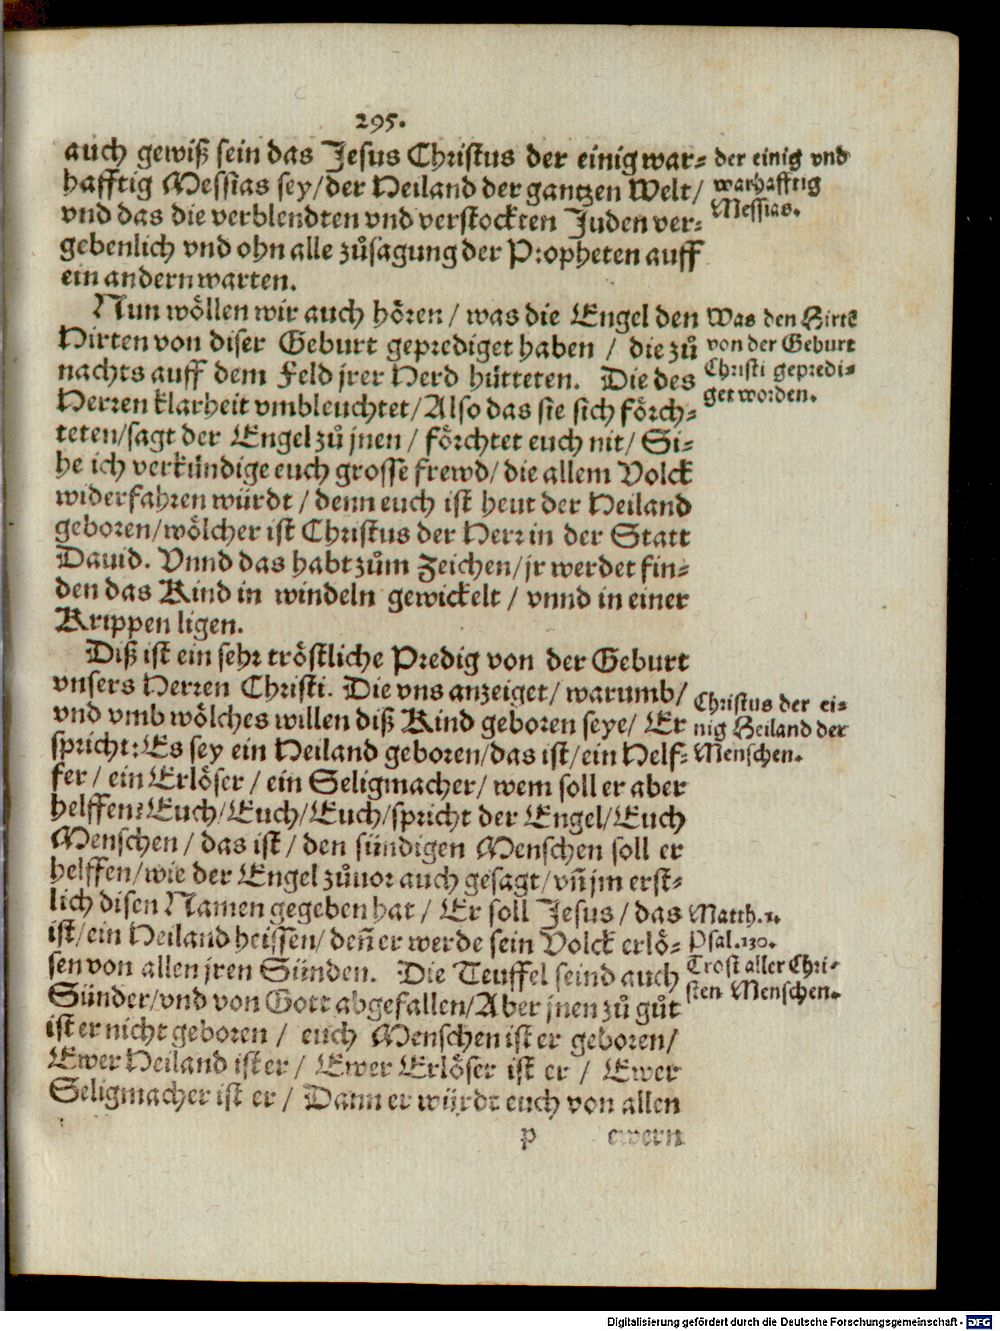 295.
auch gewiß sein das Jesus Christus der einig war-
hafftig Messias sey/der Heiland der gantzen Welt/
vnd das die verblendten vnd verstockten Juden ver-
gebenlich vnd ohn alle zůsagung der Propheten auff
ein andern warten.
der einig vnd
warhafftig
Messias.
Nun wöllen wir auch hören / was die Engel den
Hirten von diser Geburt geprediget haben / die zů
nachts auff dem Feld jrer Herd hütteten. Die des
Herren klarheit vmbleuchtet/Also das sie sich förch-
teten/sagt der Engel zů jnen / förchtet euch nit/ Si-
he ich verkündige euch grosse frewd/ die allem Volck
widerfahren würdt / denn euch ist heut der Heiland
geboren/wölcher ist Christus der Herr in der Statt
Dauid. Vnnd das habt zům Zeichen/jr werdet fin-
den das Kind in windeln gewickelt / vnnd in einer
Krippen ligen.
Was den Hirtē
von der Geburt
Christi gepredi-
get worden.
Diß ist ein sehr tröstliche Predig von der Geburt
vnsers Herren Christi. Die vns anzeiget/ warumb/
vnd vmb wölches willen diß Kind geboren seye/ Er
spricht: Es sey ein Heiland geboren/das ist/ein Helf-
fer / ein Erlöser / ein Seligmacher/ wem soll er aber
helffen? Euch/Euch/Euch/spricht der Engel/Euch
Menschen / das ist / den sündigen Menschen soll er
helffen/wie der Engel zůuor auch gesagt/vñ jm erst-
lich disen Namen gegeben hat / Er soll Jesus / das
ist/ein Heiland heissen/ deñ er werde sein Volck erlö-
sen von allen jren Sünden. Die Teuffel seind auch
Sünder/vnd von Gott abgefallen/Aber jnen zů gůt
ist er nicht geboren / euch Menschen ist er geboren/
Ewer Heiland ist er / Ewer Erlöser ist er / Ewer
Seligmacher ist er / Dann er würdt euch von allen
Christus der ei-
nig Heiland der
Menschen.
Matth.1.
Psal.130.
Trost aller Chri-
sten Menschen.
p ewern
Digitalisierung gefördert durch die Deutsche Forschungsgemeinschaft - DFG